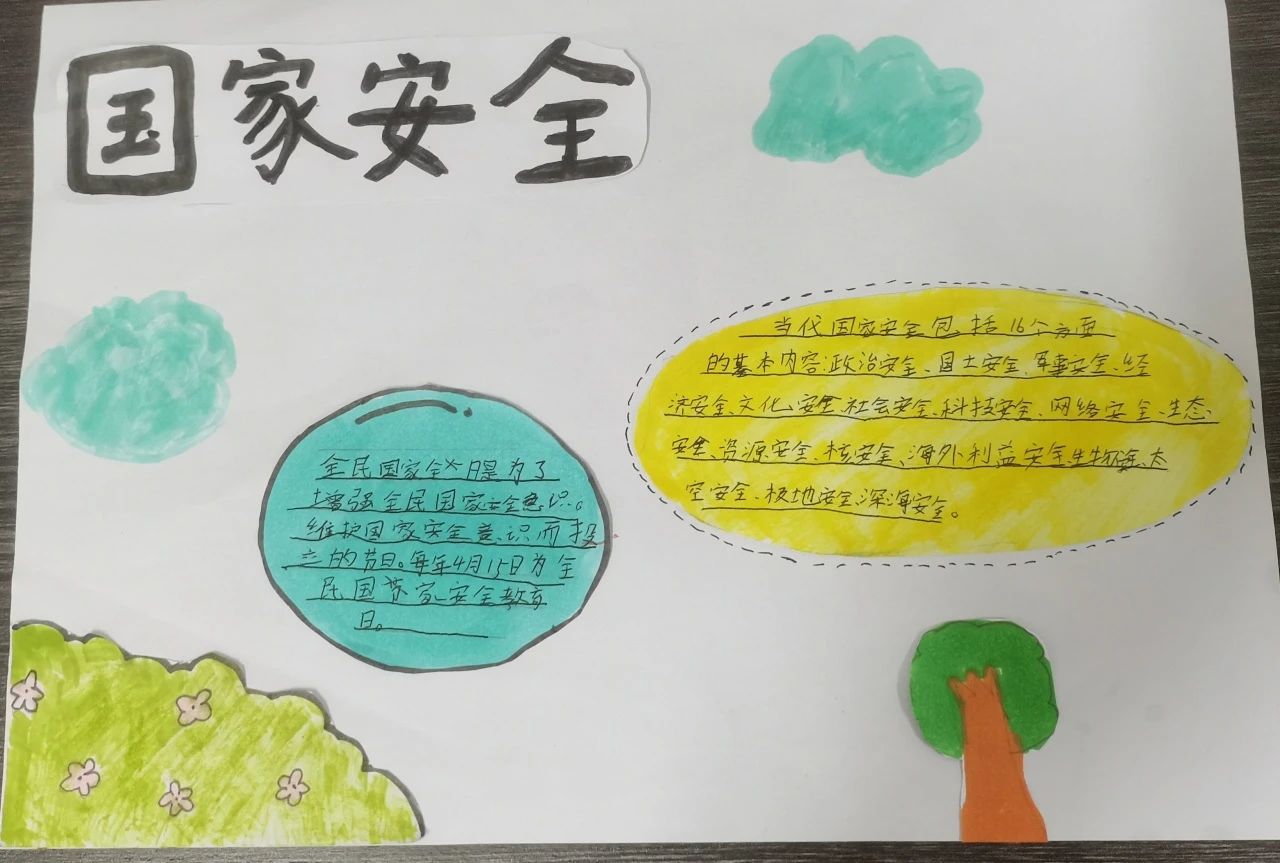 国家安全
全民国家全日是为了
增强全民国家安全意识。
维护国家安全意识而投
立的节日。每年4月15日为全
民国家安全教育
日。
当代国家安全包括16个方面
的基本内容:政治安全、国土安全、军事安全、经
济安全、文化、安全、社会安全、科技安全、网络安全、生态、
安全、资源安全、核安全、海外利益安全生物安全、太
空安全、极地安全、深海安全。